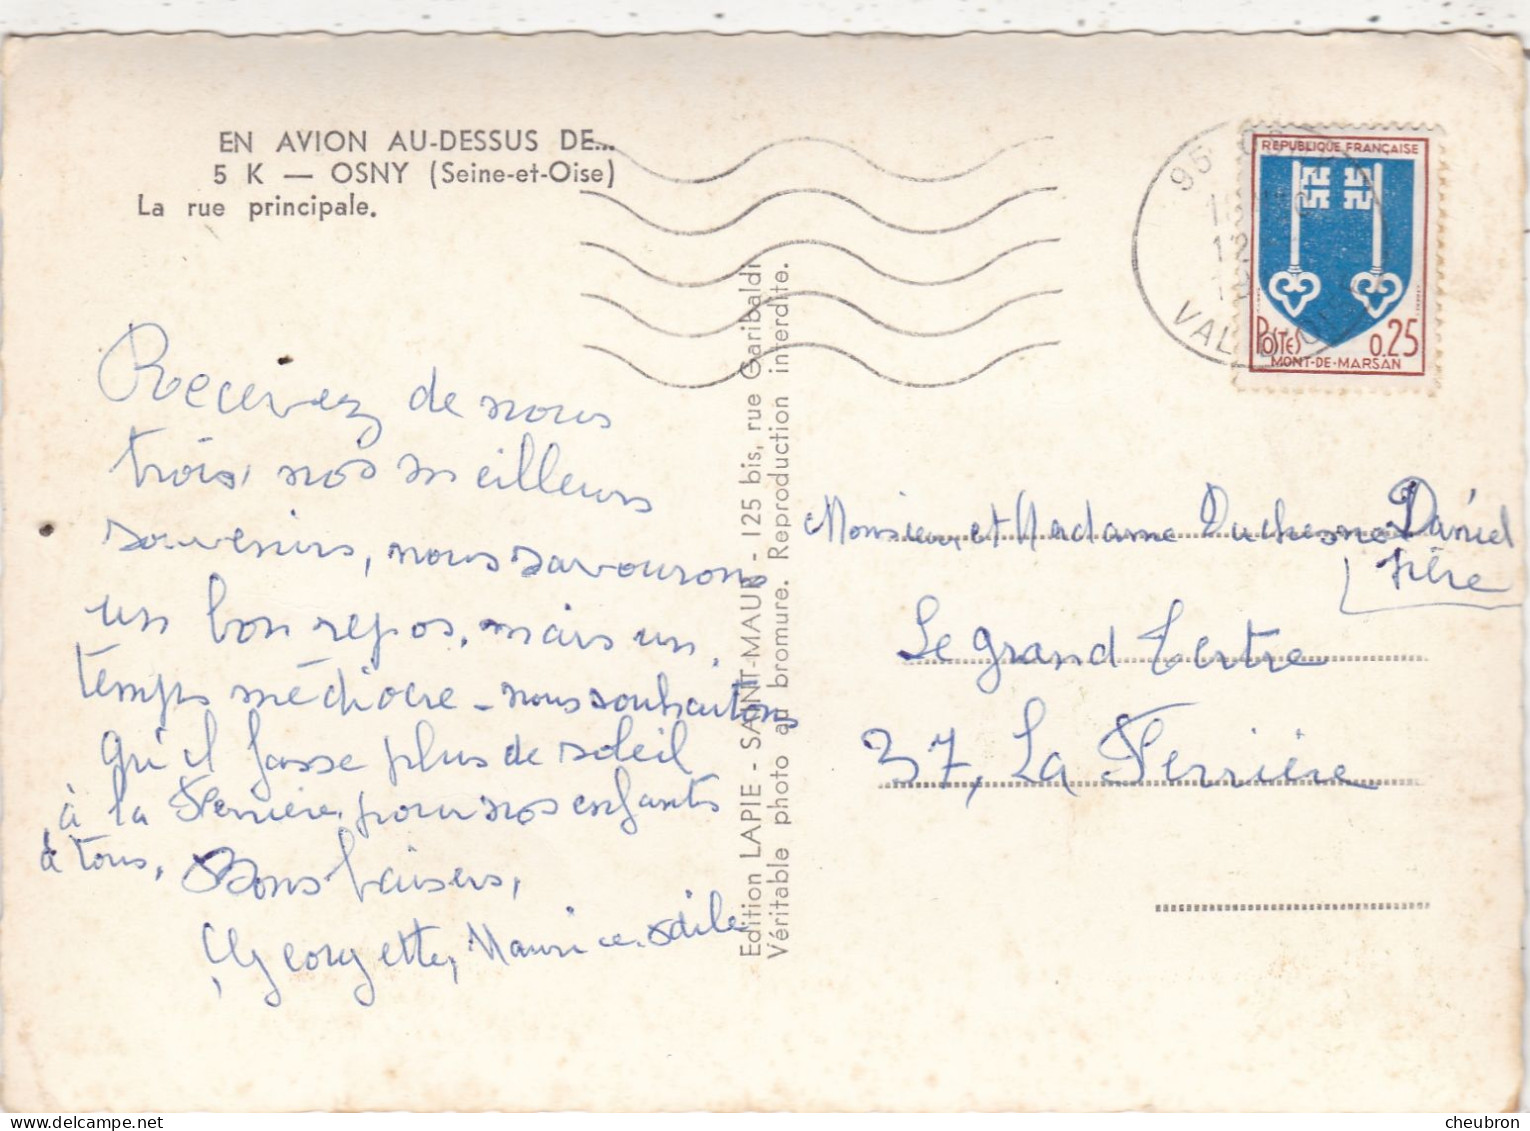 EN AVION AU-DESSUS DE...
5 K — OSNY (Seine-et-Oise)
La rue principale.
Recevez de nous
trois, nos meilleurs
souvenirs, nous savourons
un bon repos, mais un
temps médiocre - nous souhaitons
qu'il fasse plus de soleil
à la Ferrière pour nos enfants
à tous,
Bons baisers,
Georgette, Maurice, Odile
Edition LAPIE - SAINT-MAUR - 125 bis, rue Garibaldi
Véritable photo au bromure. Reproduction interdite.
95
12
VAL
RÉPUBLIQUE FRANÇAISE
POSTES 0.25
MONT-DE-MARSAN
Monsieur et Madame Duchesne Daniel
Père
Le grand Tertre
37, La Ferrière
cheubron